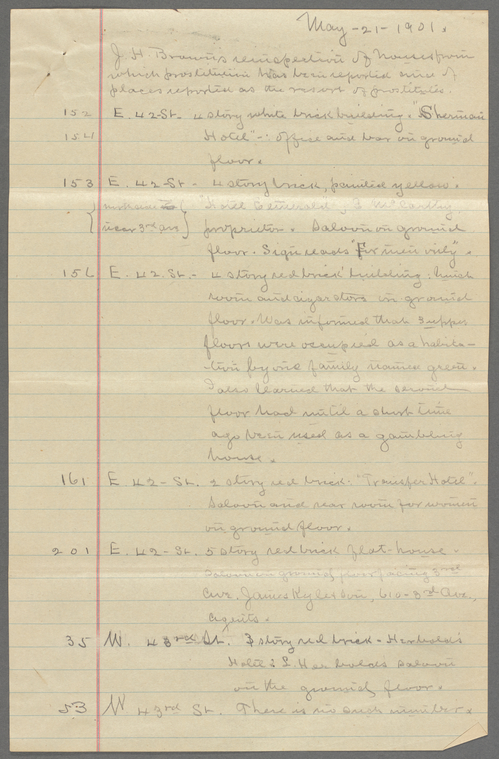 May-21-1901.
J. H. Brown's reinspection of houses from
which prostitution has been reported and of
places reported as the resort of prostitutes.
152 E. 42-St. 4 story white brick building. "Sherman
154 Hotel"-. Office and bar on ground
floor.
153 E. 42-St- 4 story brick, painted yellow.
{ near 3rd ave } "Hotel McCarthy
proprietor. Saloon on ground
floor. Sign reads "For men only".
156 E. 42. St.- 4 story red brick building. Lunch
room and cigar store on ground
floor. Was informed that 3 upper
floors were occupied as a habita-
tion by one family named Green.
I also learned that the second
floor had until a short time
ago been used as a gambling
house.
161 E 42-St. 2 story red brick. "Transfer Hotel".
Saloon and rear room for women
on ground floor.
201 E. 42-St. 5 story red brick flat-house-
Saloon on ground floor facing 3rd
Ave. James Kyle & Son, 610-3rd Ave.,
Agents.
35 W. 43rd St. 3 story red brick- Herbold's
Hotel & Saloon
on the ground floor.
53 W 43rd St. There is no such number.